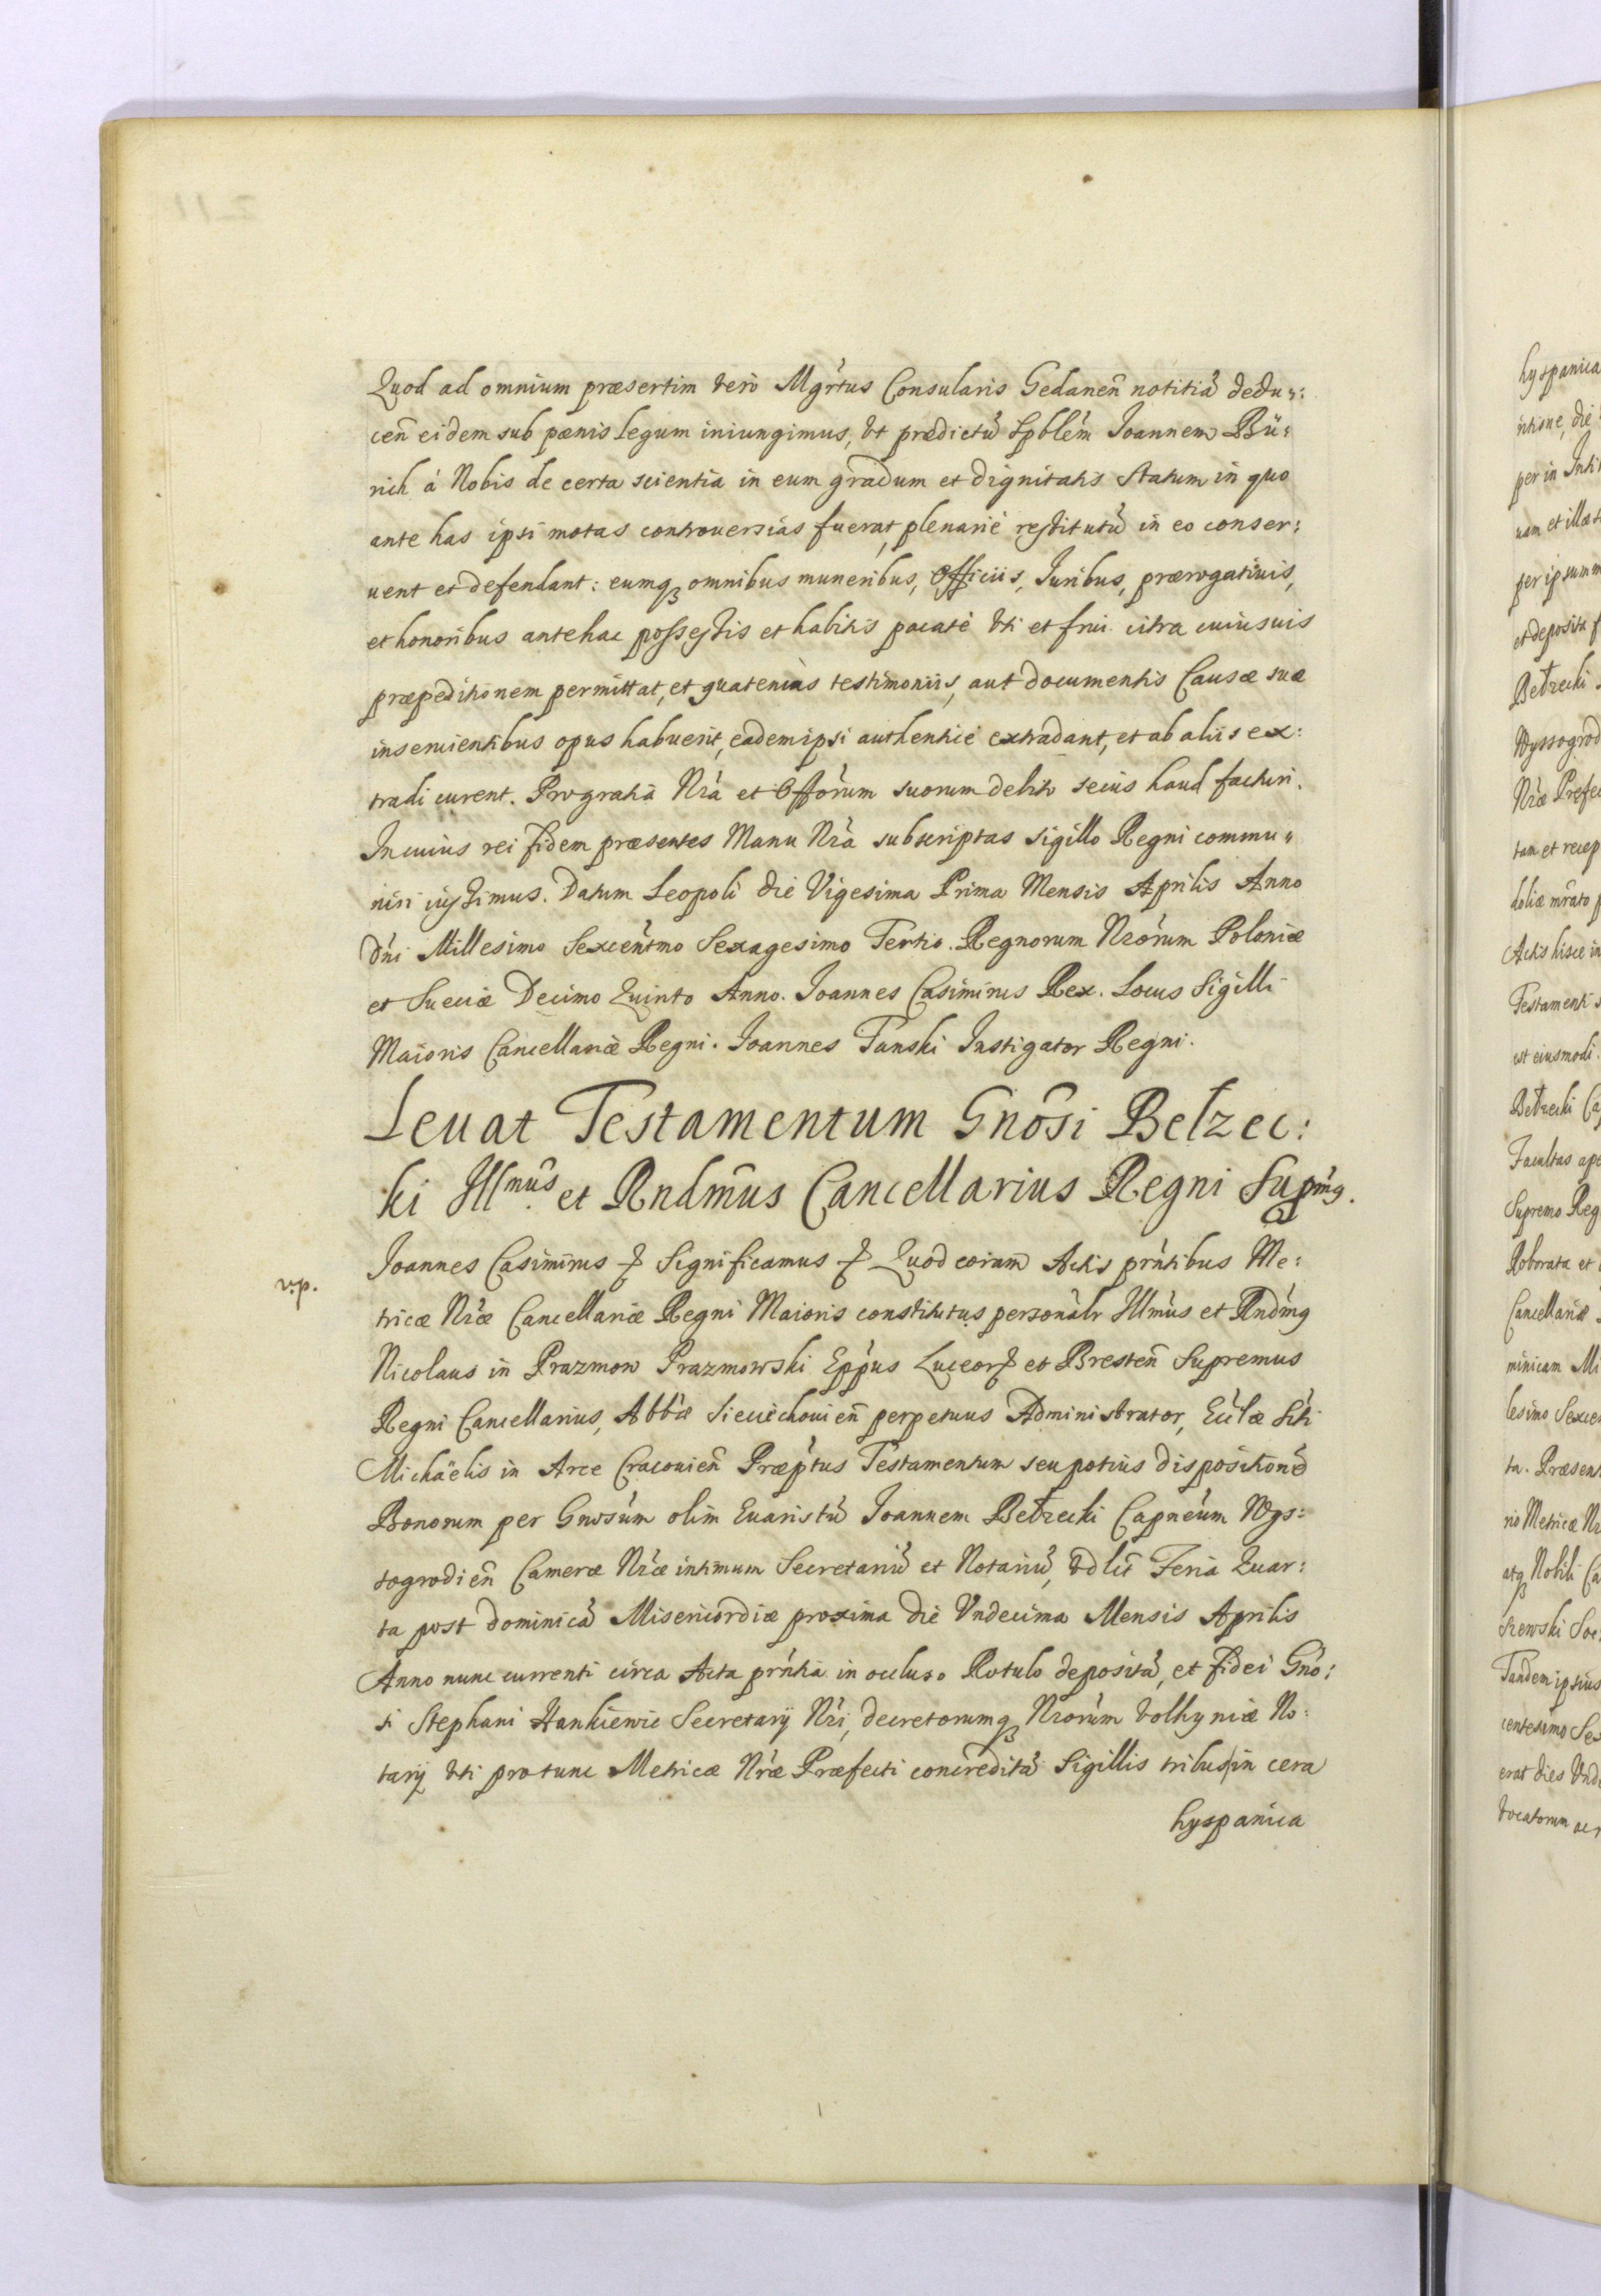 Quod ad omnium præsertim vero Mgr̃tus Consularis Gedanen̄ notitiā dedu=
cen̄ eidem sub pænis legum iniungimus, vt prædictū Spblẽm Joannem Bü=
rich á Nobis de certa scientia in eum gradum et dignitatis statum in quo
ante has ipsi motas controversias fuerat, plenarie restitutū in eo conser=
uent et defendant: eumq3 omnibus muneribus, Officiis, Juribus, prærogatiuis,
et honoribus antehac possessis et habitis pacatè vti et frui citra cuiusuis
præpeditionem permittat, et quatenùs testimoniis, aut documentis Causæ suæ
inseruientibus opus habuerit, eadem ipsi authenticè extradant, et ab aliis ex:
tradi curent. Pro gratiā Nr̃a et Offõrum suorum debito secus haud facturi.
In cuius rei fidem præsentes Manu Nr̃a subscriptas sigillo Regni commu=
niri iussimus. Datum Leopoli die Vigesima Prima Mensis Aprilis Anno
Dñi Millesimo Sexcen̄tmo Sexagesimo Tertio. Regnorum Nrõrum Poloniæ
et Sueciæ Decimo Quinto Anno. Joannes Casimirus Rex. Locus Sigilli
Maioris Cancellariæ Regni. Joannes Tanski Instigator Regni.
Leuat Testamentum Gnõsi Bełzec:
ki Illmũs et Rndm̃us Cancellarius Regni Suprm̃9.
v.p.
Joannes Casimirus & Significamus & Quod coram Actis prñtibus Me:
tricæ Nr̃æ Cancellariæ Regni Maioris constitutus personalr Illmũs et Rndm̃9
Nicolaus in Prazmow Prazmowski Epp̃us Luceor & et Bresten̄ Supremus
Regni Cancellarius, Abb̃iæ Sieciechouien̄ perpetuus Administrator, Ecc̃læ Sti
Michäelis in Arce Cracouien̄ Præp̃tus Testamentum seu potius dispositionē
Bonorum per Gnosũm olim Euaristū Joannem Bełzecki Capnẽum Wys:
sogrodien̄ Cameræ Nr̃æ intimum Secretariū et Notariū, vdlt̄ Feria Quar:
ta post dominicā Misericordiæ proxima die Vndecima Mensis Aprilis
Anno nunc currenti circa Acta prñtia in ocluso Rotulo depositā, et fidei Gño:
si Stephani Hankiewic Secretarÿ Nr̃i, decretorumq3 Nrõrum Volhyniæ No:
tarÿ vti pro tunc Metricæ Nr̃æ Præfecti concreditā Sigillis tribus in cera
hyspanica